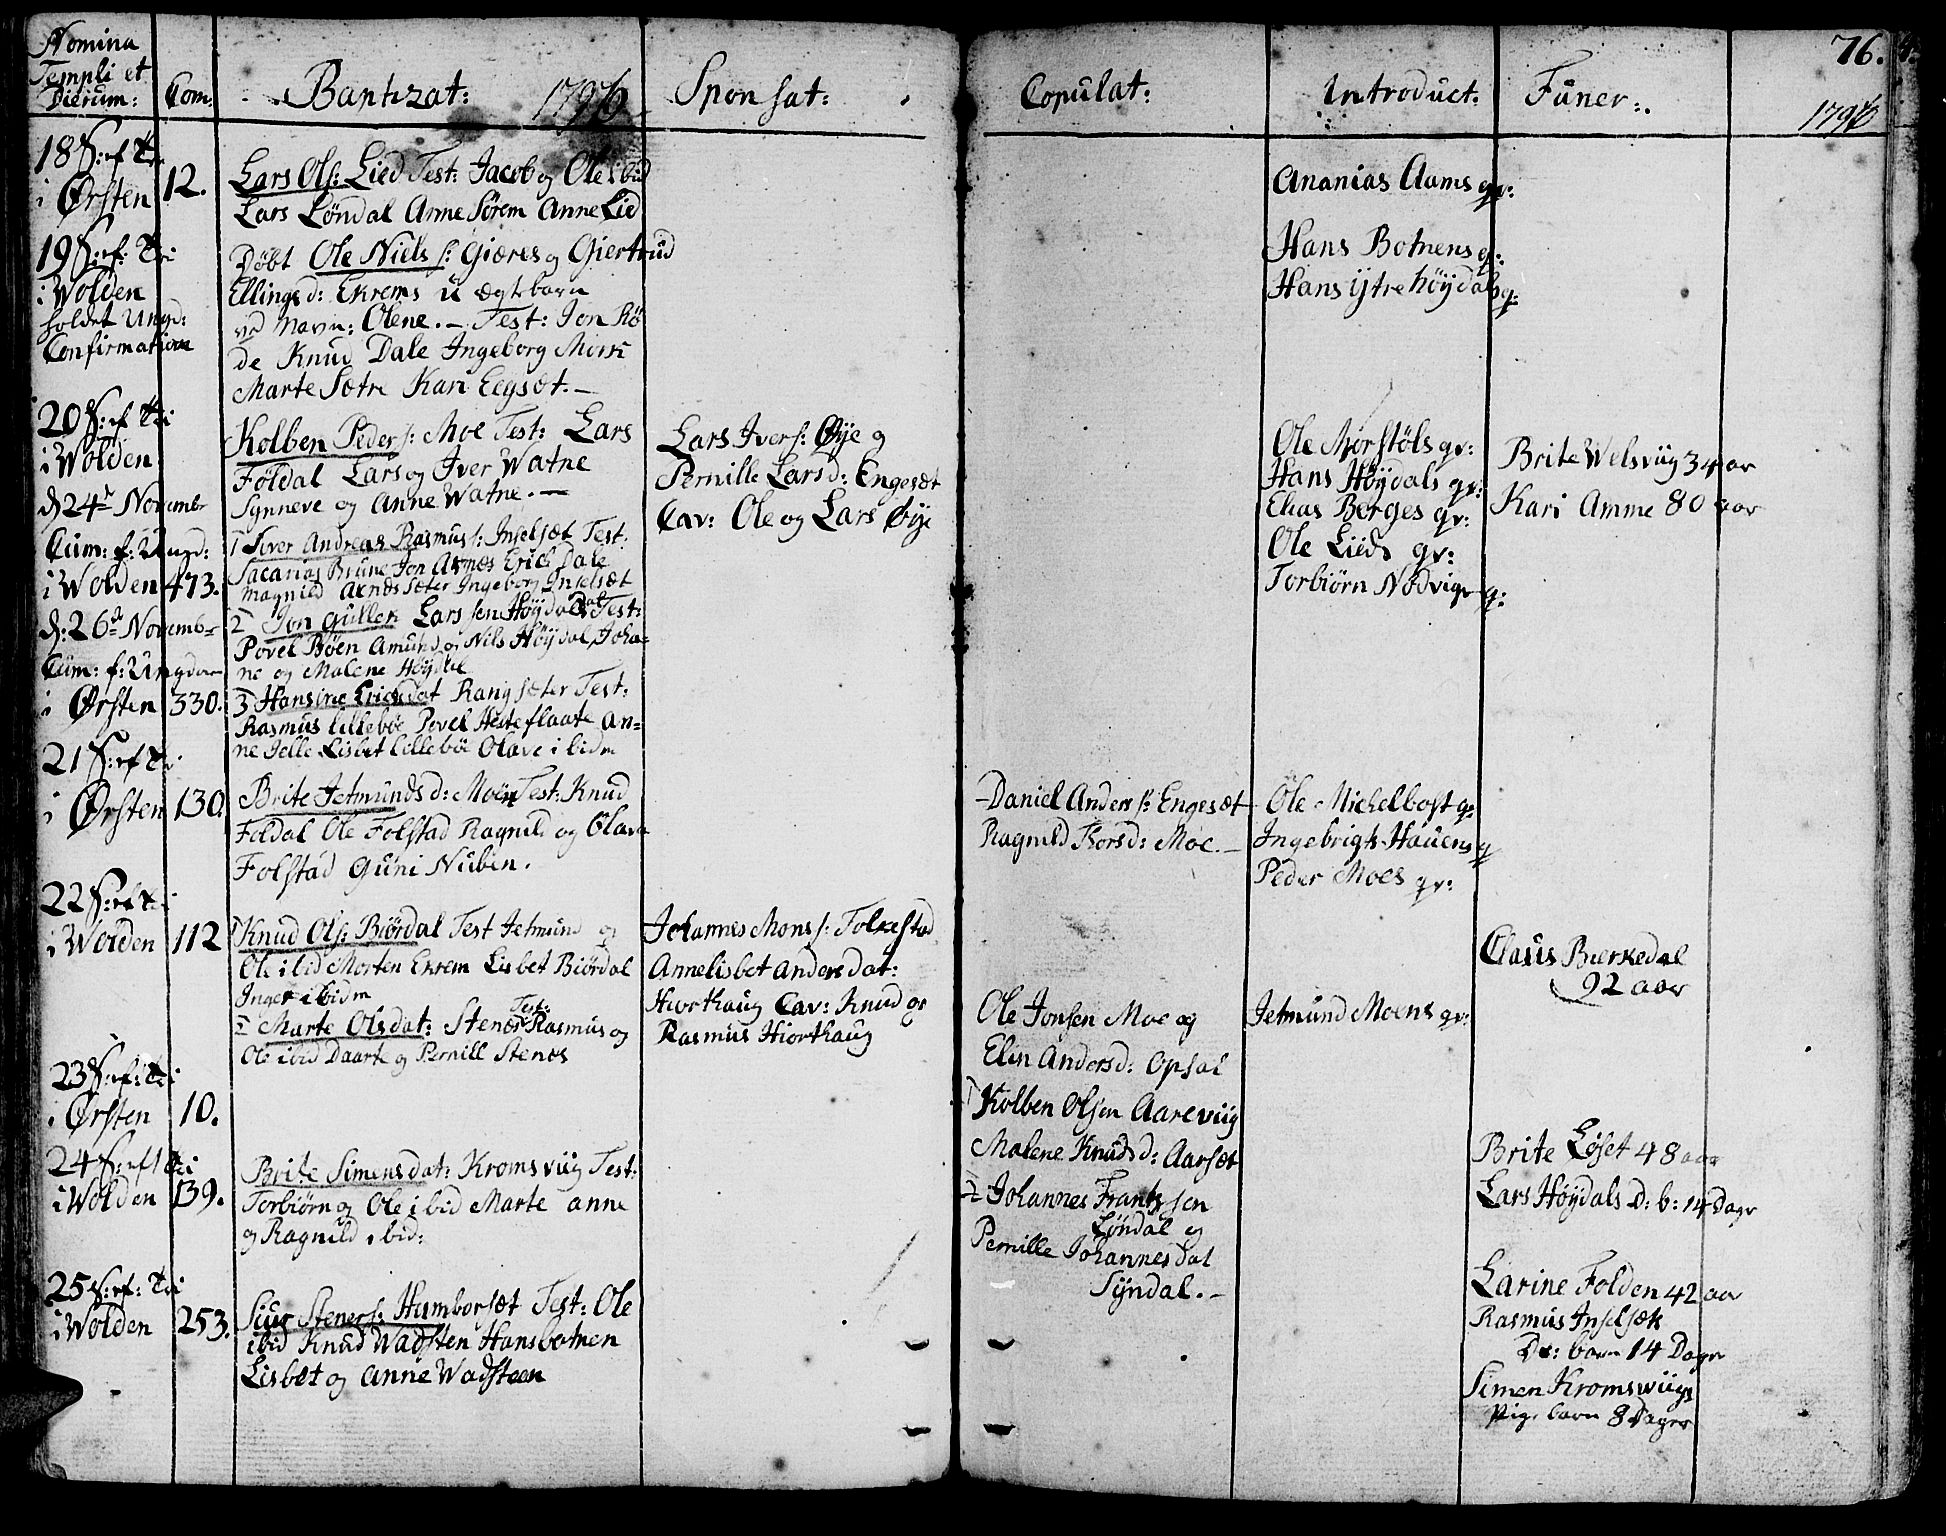 Nomina
Templi et
Dierum:
Com:
Baptizat: 1796
Sponsat:
Copulat:
Introduct:
Funer:
76.
1796
18 S: ef Tri
i Ørsten 12.
Lars Ols: Lied Test: Jacob og Ole ibid
Lars Løndal Anne Sørem Anne Lied
Ananias Aams gv:
19 S: ef: Tri
i Wolden
holdet Ungd:
Confirmation
Døbt Ole Niels s: Giæres og Giertrud
Ellingsd: Ekrems u ægte barn
ved Navn: Olene. – Test: Jon Rø
de Knud Dale Ingeborg Mork
Marte Sætre Kari Eegsæt. –
Hans Botnens gv:
Hans ÿtre høÿdals gv:
20 S: ef Tri
i Wolden
Kolben Peder s: Moe Test: Lars
Føldal Lars og Iver Watne
Synneve og Anne Watne. –
Lars Ivers: Øÿe og
Pernille Larsd: Engesæt
Cav: Ole og Lars Øÿe
Ole Morstøls gv:
Hans Høÿdals gv:
Elias Berges gv:
Ole Lieds gv:
Torbiørn Nødvigs gv:
Brite Welsviig 34 aar
Kari Amme 80 aar
d 24de Novembr
Cum: f: Ungd:
i Wolden 473.
1 Siver Andreas Rasmus s: Inselsæt Test:
Sacarias Brune Jon Aknes Erich Dale
Magnild Aknes Sæter Ingeborg Inselsæt
d: 26de Novembr
Cum: f: Ungdom
i Ørsten 330.
2 Jon Gullek Lars sen Høÿdals Test:
Povel Bøen Amund og Nils Høÿdal Joha-
ne og Malene Høÿdal
3 Hansine Ericksdat Rangsæter Test:
Rasmus Lillebøe Povel Hesteflaate An-
ne Jelle Lisbet Lillebøe Olave ibidm
21 S: ef Tri
i Ørsten 130.
Brite Jetmunds d: Moen Test: Knud
Foldal Ole Folstad Ragnild og Olave
Folstad Guni Nuben.
Daniel Anders s: Engesæt
Ragnild Thorsd: Moe. –
Ole Michelbost gv:
Ingebrigt Hauens gv
Peder Moes gv:
22 S: ef Tri
i Wolden 112
1 Knud Ols: Biørdal Test Jetmund og
Ole ibid Morten Ekrem Lisbet Biørdal
Inger ibidm
2 Marte Olsdat: Stenes Test: Rasmus og
Ole ibid Daarte og Pernill Stenes
Johannes Mons s: Folkestad
Annelisbet Andersdat:
Hiorthaug Cav: Knud og
Rasmus Hiorthaug
Ole Jonsen Moe og
Elen Andersd: Opsal
Jetmund Moens gv:
Claus Bierkedal
92 aar
23 S: ef: Tri
i Ørsten 10.
1 Kolben Olsen Aareviig
Malene Knuds d: Aarsæt
2 Johannes Frantz sen
Løndal og
Pernille Johannesdat
Sÿndal. –
24 S: eft Tri
i Wolden 139.
Brite Simensdat: Kromsviig Test:
Torbiørn og Ole ibid Marte Anne
og Ragnild ibid:
Brite Løset 48 aar
Lars Høÿdals D: b: 14 Dage
25 S: ef: Tri
i Wolden 253.
Siur Steners: Humborsæt Test: Ole
ibid Knud Wadsten Hans botnen
Lisbet og Anne Wadsteen
Larine Folden 42 aar
Rasmus Inselsæts
Dr: barn 14 Dage
Simen Kromswiigs
Pige barn 8 Dager